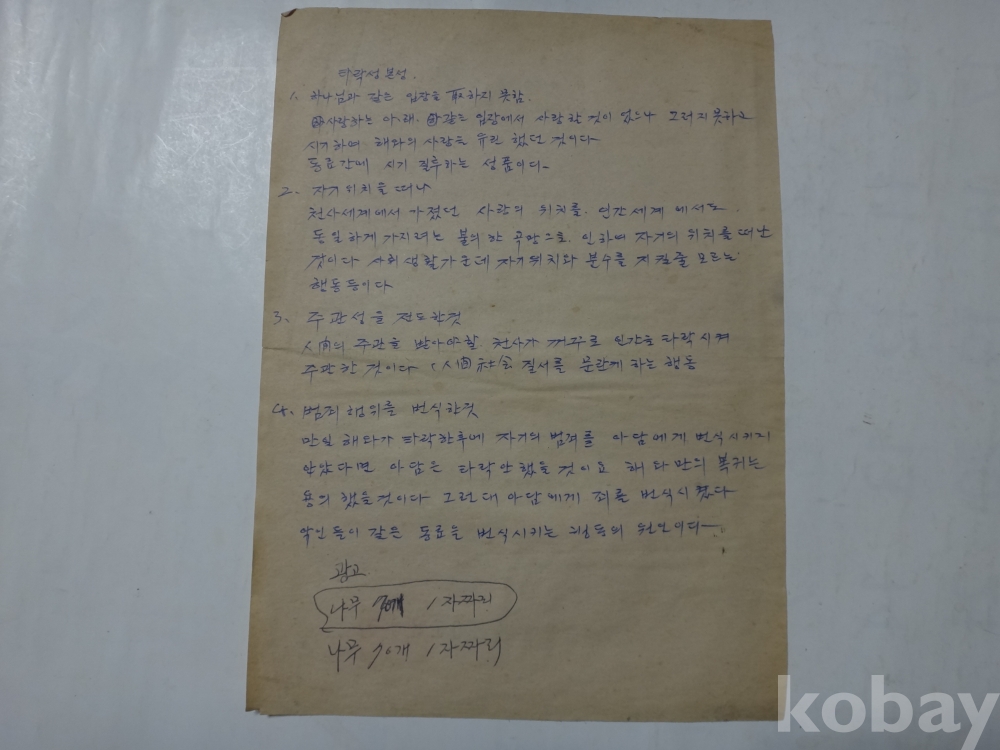 타락성본성.
1. 하나님과 같은 입장을 取하지 못함.
사랑하는 아래. 같은 입장에서 사랑할 것이 었으나 그러지못하고
시기하며 해와의 사랑을 유린 했던 것이다
동료간에 시기 질투하는 성품이다-
2. 자기위치를 떠나
천사세계에서 가졌던 사랑의 위치를. 인간세계 에서도
동일하게 가지려는 불의한 욕망으로. 인하여 자기의 위치를 떠난
것이다 사회생활가운데 자기위치와 분수를 지킬줄 모르는
행동등이다
3. 주관성을 전도한것
人間의 주관을 받아야할 천사가 꺼꾸로 인간을 타락시켜
주관한 것이다 (人間社会 질서를 문란케 하는 행동
4. 범죄행위를 번식한것
만일 해와가 타락한후에 자기의 범죄를 아담에게 번식시키지
않았다면 아담은 타락안했을것이요 해와만의 복귀는
용의했을것이다 그런대 아담에게 죄를 번식시켰다
악인들이 같은 동료을 번식시키는 행동의 원인이다-
광고
나무 70개 1자짜리
나무 70개 1자짜리
kobay